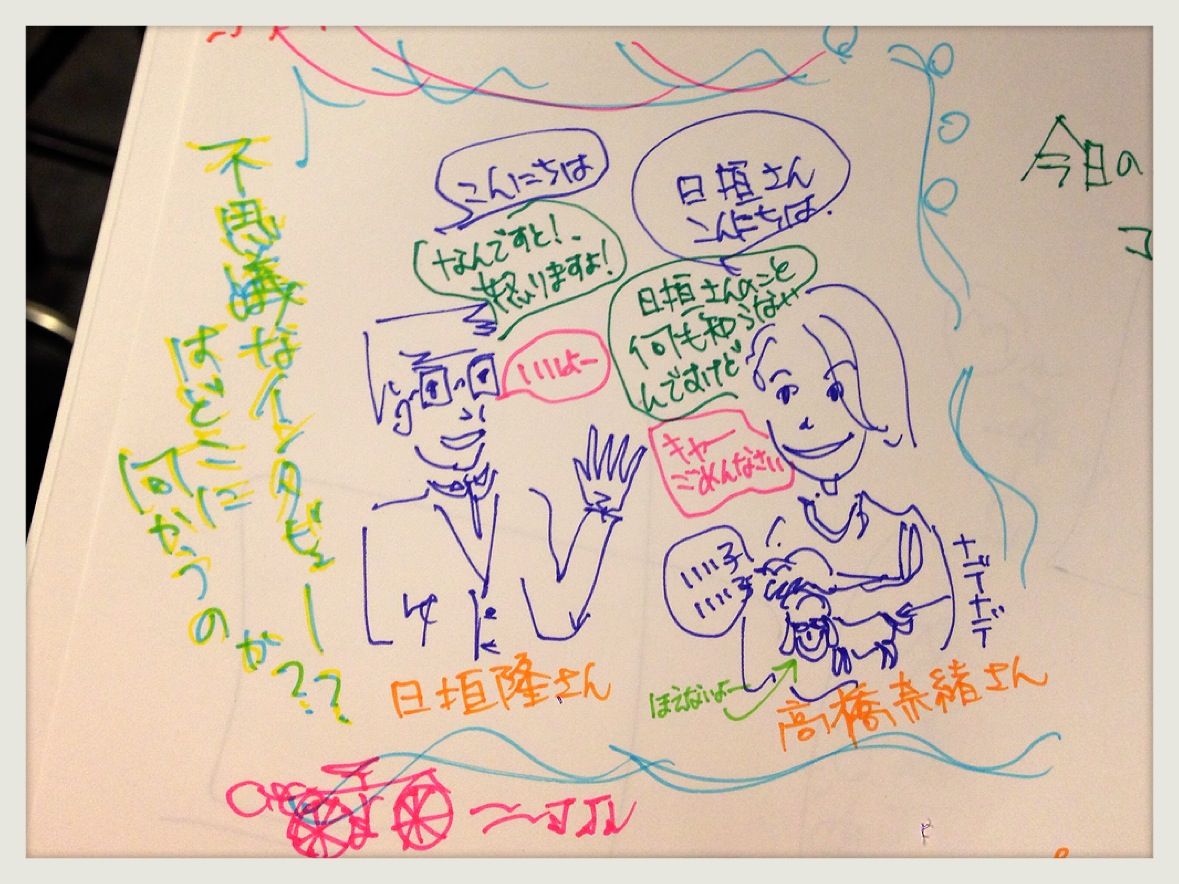 不思議なインタビュー
はどこに
向かうのか??
こんにちは
日垣さん
こんにちは.
なんですと!、
怒りますよ!
日垣さんのこと
何も知らない
んですけど
いいよー
キャー
ごめんなさい
いい子
いい子
ナデナデ
ほえないよー
日垣隆さん
高橋奈緒さん
今日の
コ